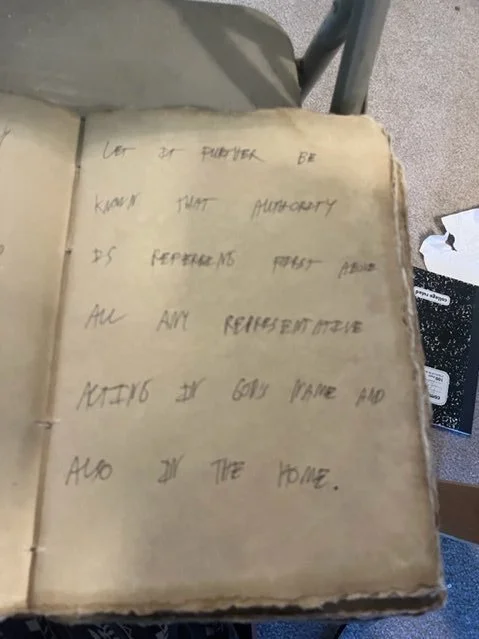 LET IT FURTHER BE
KNOWN THAT AUTHORITY
IS FIRST ABOVE
ALL ANY REPRESENTATIVE
ACTING IN GODS NAME AND
ALSO IN THE HOME.
college ruled